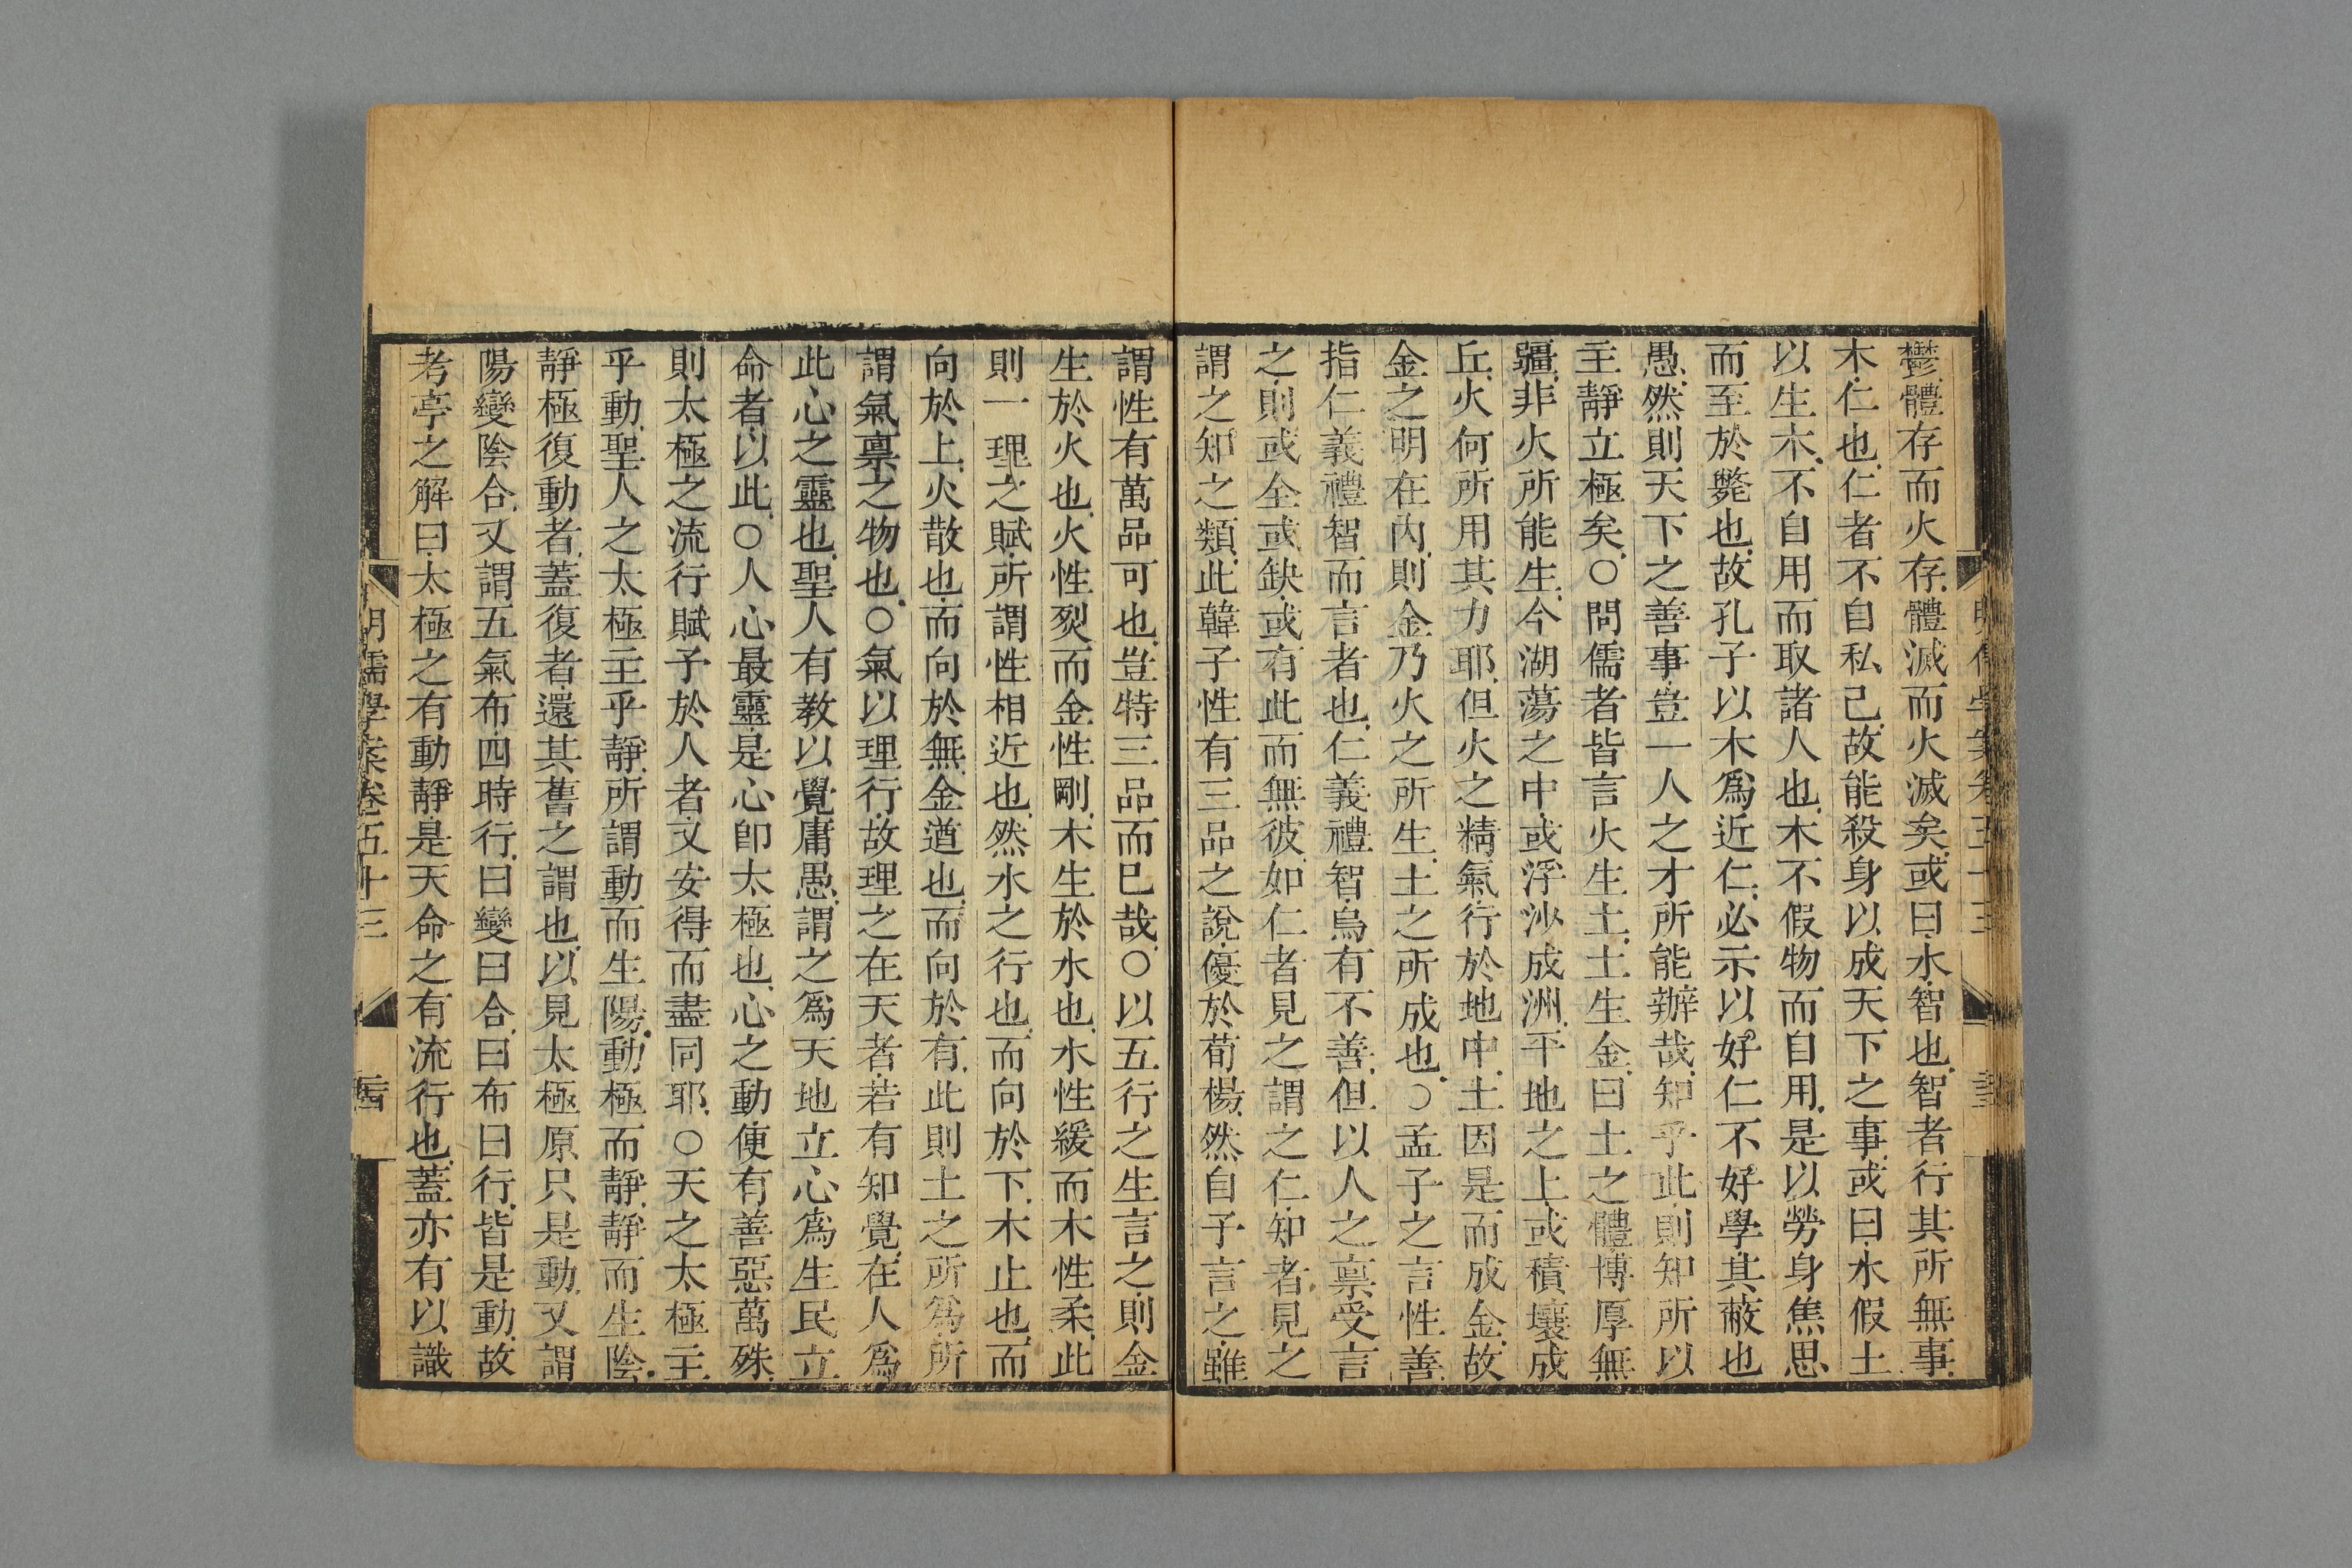 鬱體存而火存體滅而火滅矣或曰水智也智者行其所無事
木仁也仁者不自私己故能殺身以成天下之事或曰水假土
以生木不自用而取諸人也木不假物而自用是以勞身焦思
而至於斃也故孔子以木爲近仁必示以好仁不好學其蔽也
愚然則天下之善事豈一人之才所能辦哉知乎此則知所以
主靜立極矣○問儒者皆言火生土土生金曰土之體博厚無
疆非火所能生今湖蕩之中或浮沙成洲平地之上或積壤成
丘火何所用其力耶但火之精氣行於地中土因是而成金故
金之明在內則金乃火之所生土之所成也○孟子之言性善
指仁義禮智而言者也仁義禮智烏有不善但以人之禀受言
之則或全或缺或有此而無彼如仁者見之謂之仁知者見之
謂之知之類此韓子性有三品之說優於荀楊然自子言之雖
謂性有萬品可也豈特三品而已哉○以五行之生言之則金
生於火也火性烈而金性剛木生於水也水性緩而木性柔此
則一理之賦所謂性相近也然水之行也而向於下木止也而
向於上火散也而向於無金遒也而向於有此則土之所爲所
謂氣禀之物也○氣以理行故理之在天者若有知覺在人爲
此心之靈也聖人有教以覺庸愚謂之爲天地立心爲生民立
命者以此○人心最靈是心卽太極也心之動便有善惡萬殊
則太極之流行賦予於人者又安得而盡同耶○天之太極主
乎動聖人之太極主乎靜所謂動而生陽動極而靜靜而生陰
靜極復動者蓋復者還其舊之謂也以見太極原只是動又謂
陽變陰合又謂五氣布四時行曰變曰合曰布曰行皆是動故
考亭之解曰太極之有動靜是天命之有流行也蓋亦有以識
明儒學案卷五十三